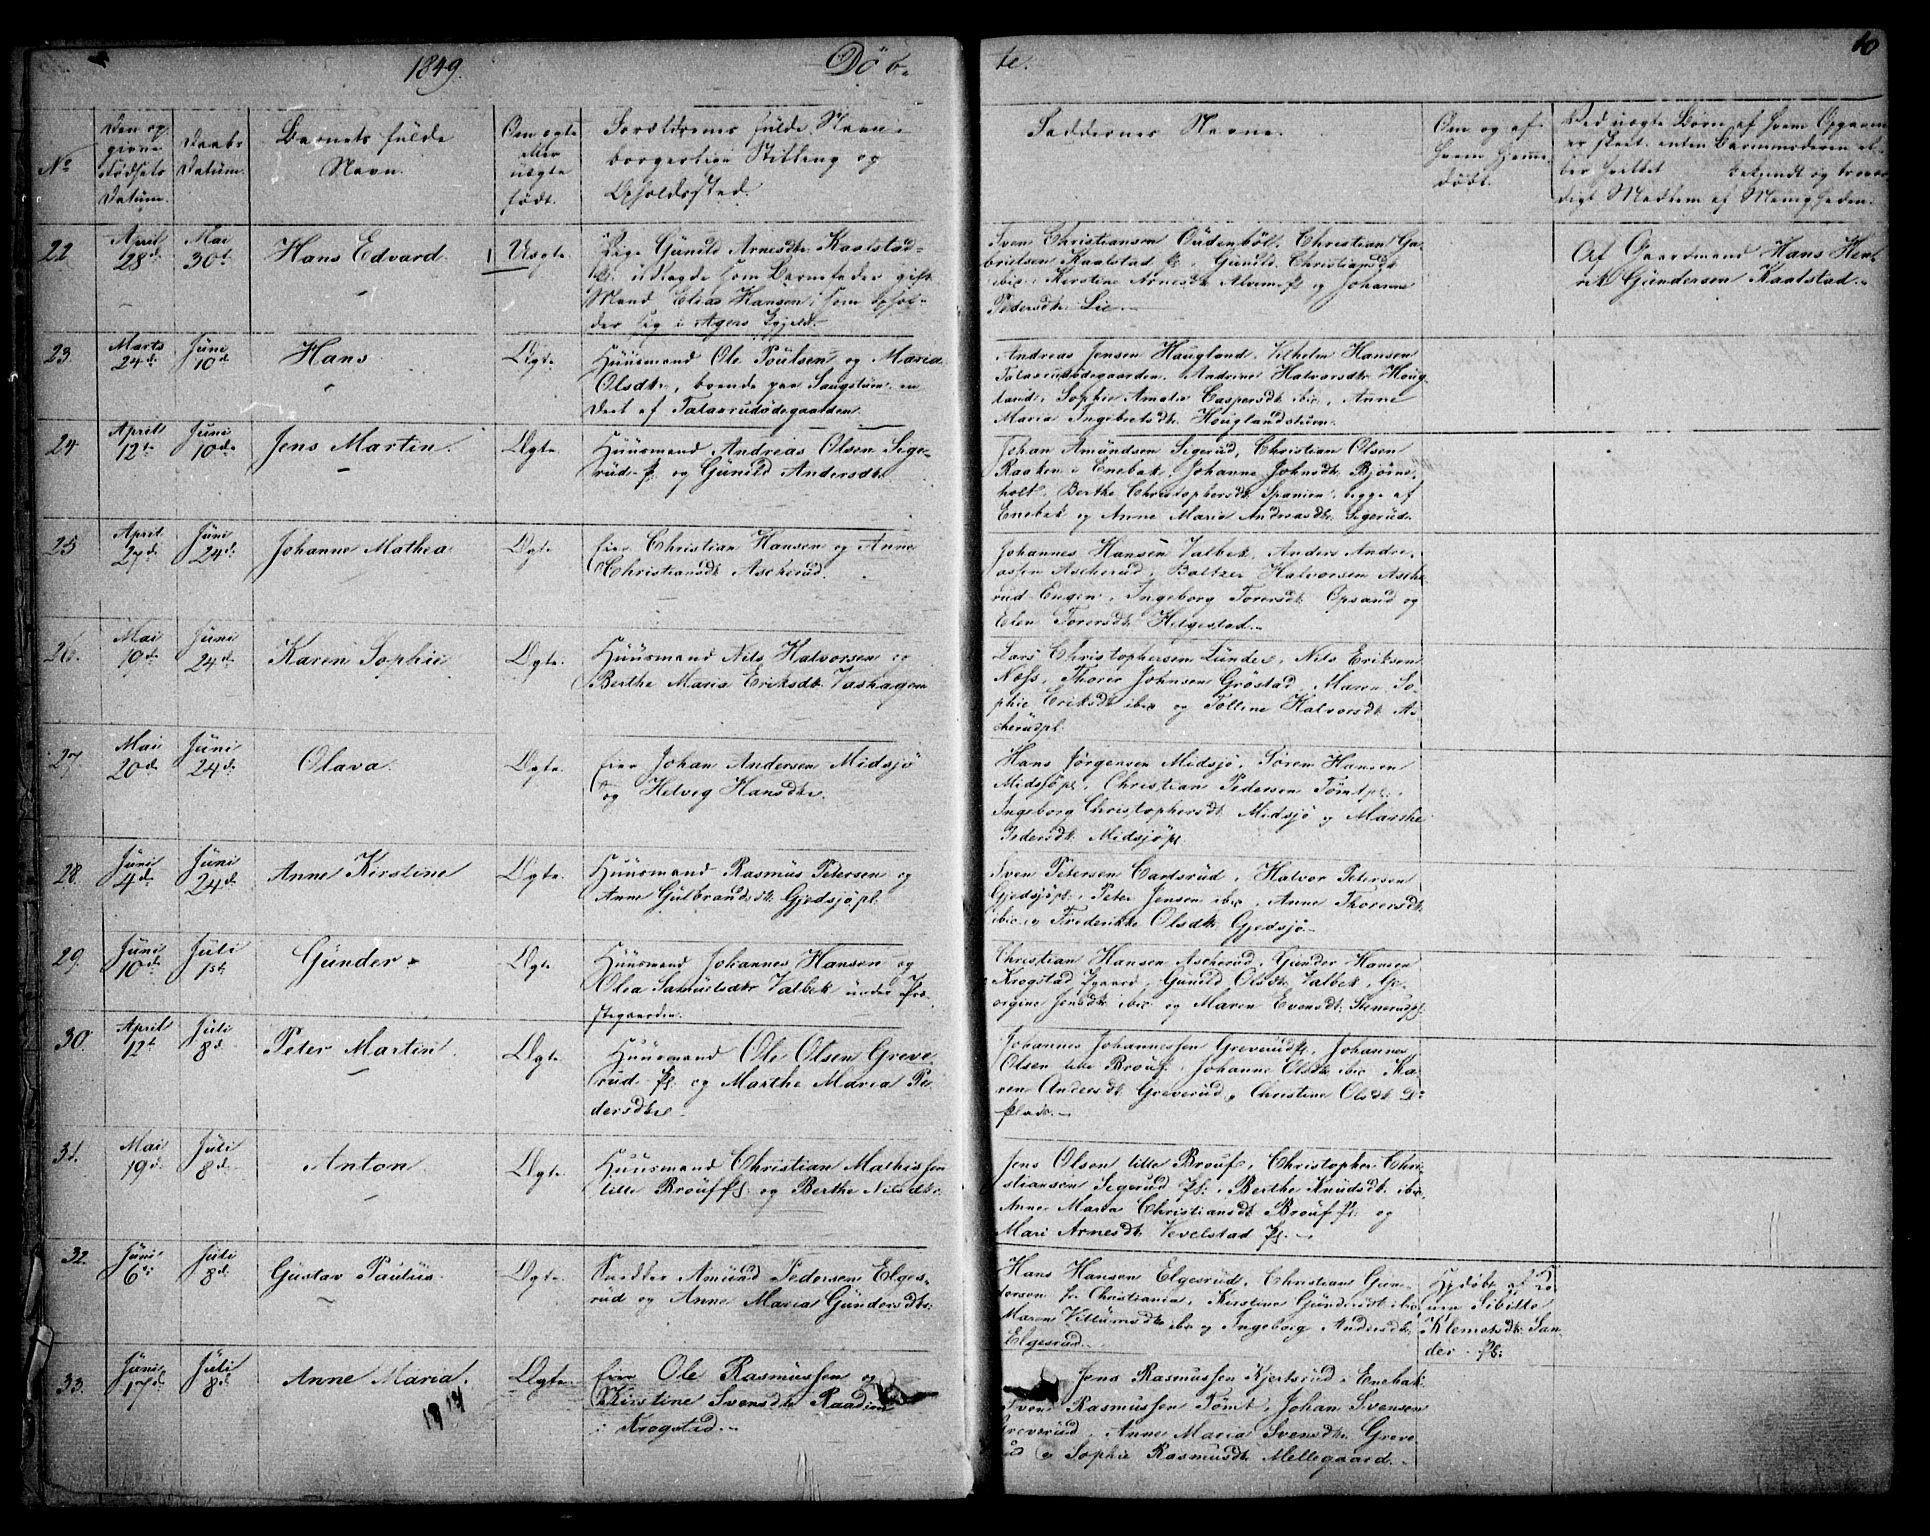 1849. Döb-
te. 10
No
Den op-
givne
Födsels
Datum.
Daabs
Datum.
Barnets fulde
Navn.
Om ægte
eller
uægte
födt.
Forældrenes fulde Navn,
borgerlige Stilling og
Opholdssted.
Faddernes Navne.
Om og af
hvem hjemme
döbt.
Ved uægte Börn, af hvem Opgaven
er skeet, enten Barnmoderen el-
ler hvilket bekjendt og trovær-
digt Medlem af Menigheden.
22 April 28d. Mai 30t. Hans Edvard. 1 Uægte.
Pige Gunild Arnesdtr Kaalstad-
Pl. udlagde som Barnefader gift
Mand Elias Hansen, som ophol-
der sig i Agers Pgjeld.
Sven Christiansen Oudenböl, Christian Ga-
brielsen Kaalstad Pl., Gunild Christiansdt
ibid., Kirstine Arnesdt. Alvern Pl og Johanne
Pedersdt. Lie.
Af Gaardmand Hans Hen-
rik Gundersen Kaalstad.
23. Marts 24d. Juni 10d. Hans Ægte.
Huusmand Ole Poulsen og Maria
Olsdtr., boende paa Saugstuen en
Deel af Talaarudödegaarden
Andreas Jensen Haugland, Vilhelm Hansen
Talaarudödegaarden, Andrine Halvorsdtr Houg-
land, Sophie Amalie Caspersdt ibid, Anne
Maria Ingebretsdt. Houglandstuen.
24 April 12te Juni 10de Jens Martin. Ægte.
Huusmand Andreas Olsen Sige-
rud Pl. og Gunild Andersdtr
Johan Amundsen Sigerud, Christian Olsen
Raaken i Enebak, Johanne Johnsdt. Björne-
holt, Berthe Christophersdt. Spanien, begge af
Enebak og Anne Maria Andreasdt. Sigerud.
25 April 27d. Juni 24d. Johanne Mathea Ægte
Eier Christian Hansen og Anne
Christiansdt Ascherud.
Johannes Hansen Valbek, Anders Andre-
assen Ascherud, Baltzer Halvorsen Asche-
rud Engen, Ingeborg Torersdt. Opsand og
Elen Torersdt. Helgestad.
26. Mai 19d. Juni 24d. Karen Sophie Ægte.
Huusmand Nils Halvorsen og
Berthe Maria Eriksdt. Vashagen
Lars Christophersen Lunder, Nils Eriksen
Næss, Thorer Johnsen Gröstad, Maren So-
phie Eriksdt ibid og Tolline Halvorsdt. As-
cherudpl.
27 Mai 20d. Juni 24d. Olava. Ægte.
Eier Johan Andersen Midsjö
og Helvig Hansdtr.
Hans Jörgensen Midsjö, Sören Hansen
Midsjöpl, Christian Pedersen Tömtpl.
Ingeborg Christophersdt Midsjö og Marthe
Pedersdt. Midsjöpl
28. Juni 4d. Juni 24d. Anne Kirstine Ægte.
Huusmand Rasmus Petersen og
Anne Gulbrandsdt. Gjedsjöpl.
Sven Petersen Carlsrud, Halvor Petersen
Gjedsjöpl, Peter Jensen ibid, Anne Thorersdt
ibid og Frederikke Olsdt. Gjedsjö
29. Juni 10de Juli 1st. Gunder. Ægte
Huusmand Johannes Hansen og
Olea Samuelsdtr Valbek under Præ-
stegaarden.
Christian Hansen Ascherud, Gunder Hansen
Krogstad Pgaard, Gunild Olsdt. Valbek, Ge-
orgine Jensdt ibid og Maren Evensdt. Stenerudpl.
30. April 12t. Juli 8d. Peter Martin. Ægte.
Huusmand Ole Olsen Greve-
rud Pl. og Marthe Maria Pe-
dersdtr
Johannes Johannessen Greverudpl, Johannes
Olsen lille Brouf, Johanne Olsdt ibid Ka-
ren Andersdt Greverud, Christine Olsdt
Plads.
31. Mai 19d. Juli 8d. Anton. Ægte.
Huusmand Christian Mathissen
lille Brouf Pl. og Berthe Nilsdtr.
Jens Olsen lille Brouf, Christopher Chri-
stiansen Sigerud Pl., Berthe Knudsdt. ibid,
Anne Maria Christiansdt Brouf Pl. og
Mari Arnesdt. Vevelstad Pl.
32. Juni 6te Juli 8d. Gustav Paulus. Ægte.
Snedker Amund Pedersen Elges-
rud og Anne Maria Gundersdtr
Hans Hansen Elgesrud, Christian Gun-
dersen fr. Christiania, Kirstine Gundersdt ibid,
Maren Villumsdt ibid og Ingeborg Andersdt.
Elgesrud.
Hjdöbt af Ko-
nen Sibille
Klemetsdt. San-
der Pl:
33. Juni 17d. Juli 8d. Anne Maria. Ægte.
Eier Ole Rasmussen og
Kirstine Svensdtr Raadim
i Krogstad.
Jens Rasmussen Kjertsrud i Enebak
Sven Rasmussen Tömt, Johan Svensen
Greverud, Anne Maria Svensdt. Greve-
rud og Sophie Rasmusdt. Mellegaard.
1914